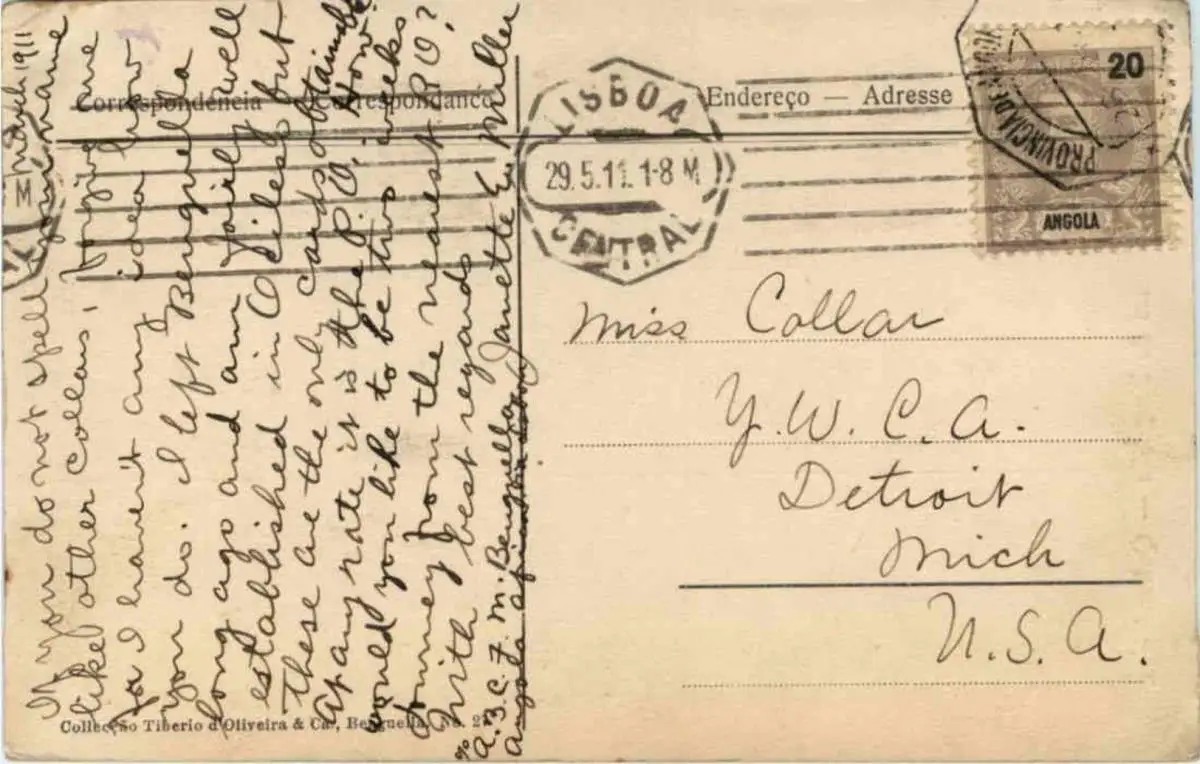 Correspondencia — Correspondance
Endereço — Adresse
LISBOA
29.5.11. 1-8 M
CENTRAL
20
ANGOLA
PROVINCIA DE
M
March 1911
If you do not spell your name
like other Collars, forgive me
for I haven't any idea how
you do. I left Benguella
long ago and am fairly well
established in Ociless but
these are the only cards obtainable
At any rate it is the P.O. How
would you like to be two weeks
journey from the nearest P.O?
With best regards
Janette E. Miller
c/o A.B.C.F.M. Benguella
Angola Africa
Miss Collar
Y.W.C.A.
Detroit
Mich
U.S.A.
Collecção Tiberio d'Oliveira & Ca., Benguella, No. 2